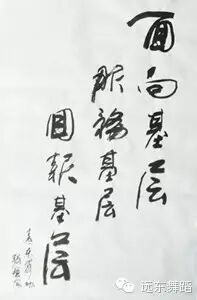 面向基层
服务基层
回报基层
远东舞蹈